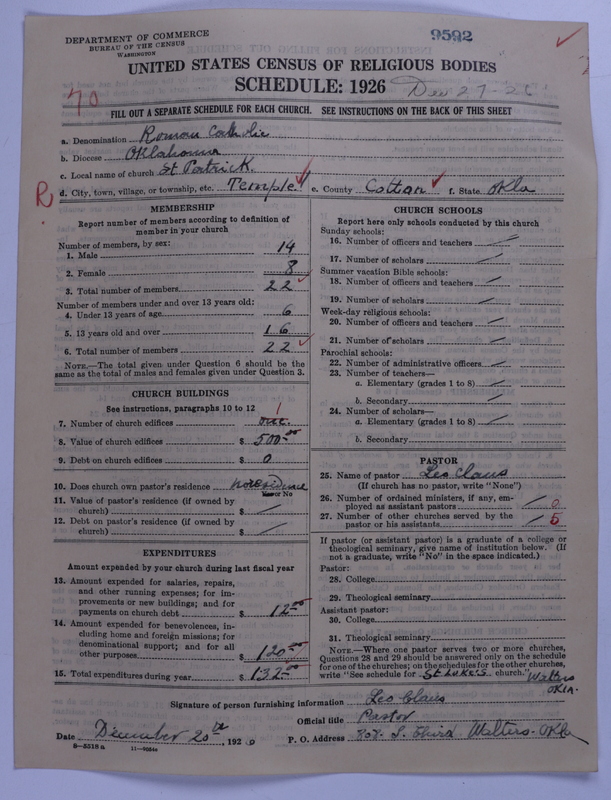 DEPARTMENT OF COMMERCE
BUREAU OF THE CENSUS
WASHINGTON
9592
UNITED STATES CENSUS OF RELIGIOUS BODIES
SCHEDULE: 1926
Dec 27-26
70
FILL OUT A SEPARATE SCHEDULE FOR EACH CHURCH. SEE INSTRUCTIONS ON THE BACK OF THIS SHEET
a. Denomination Roman Catholic
b. Diocese Oklahoma
c. Local name of church St Patrick.
R
d. City, town, village, or township, etc. Temple e. County Cotton f. State Okla
MEMBERSHIP
Report number of members according to definition of member in your church
Number of members, by sex:
1. Male 14
2. Female 8
3. Total number of members 22
Number of members under and over 13 years old:
4. Under 13 years of age 6
5. 13 years old and over 16
6. Total number of members 22
NOTE.—The total given under Question 6 should be
same as the total of males and females given under Question 3.
CHURCH BUILDINGS
See instructions, paragraphs 10 to 12
1
7. Number of church edifices one.
8. Value of church edifices $ 500.00
9. Debt on church edifices $ 0
10. Does church own pastor's residence no residence
Yes or No
11. Value of pastor's residence (if owned by
church) $ /
12. Debt on pastor's residence (if owned by
church) $ /
EXPENDITURES
Amount expended by your church during last fiscal year
13. Amount expended for salaries, repairs,
and other running expenses; for im-
provements or new buildings; and for
payments on church debt $ 12.00
14. Amount expended for benevolences, in-
cluding home and foreign missions; for
denominational support; and for all
other purposes $ 120.00
15. Total expenditures during year $ 132.00
CHURCH SCHOOLS
Report here only schools conducted by this church
Sunday schools:
16. Number of officers and teachers /
17. Number of scholars /
Summer vacation Bible schools:
18. Number of officers and teachers /
19. Number of scholars /
Week-day religious schools:
20. Number of officers and teachers /
21. Number of scholars /
Parochial schools:
22. Number of administrative officers /
23. Number of teachers—
a. Elementary (grades 1 to 8) /
b. Secondary /
24. Number of scholars—
a. Elementary (grades 1 to 8) /
b. Secondary
PASTOR
25. Name of pastor Leo Claus
(If church has no pastor, write "None")
26. Number of ordained ministers, if any, em-
ployed as assistant pastors / 0
27. Number of other churches served by the
pastor or his assistants / 5
If pastor (or assistant pastor) is a graduate of a college or
theological seminary, give name of institution below. (If
not a graduate, write "No" in the space indicated.)
Pastor:
28. College
29. Theological seminary
Assistant pastor:
30. College
31. Theological seminary
NOTE.—Where one pastor serves two or more churches,
Questions 28 and 29 should be answered only on the schedule
for one of the churches; on the schedules for the other churches,
write "See schedule for St Luke's church." Walters
Okla.
Signature of person furnishing information Leo Claus
Official title Pastor
Date December 20th, 1926 P. O. Address 808. S. Third Walters-Okla
8—5518 a 11—9054a